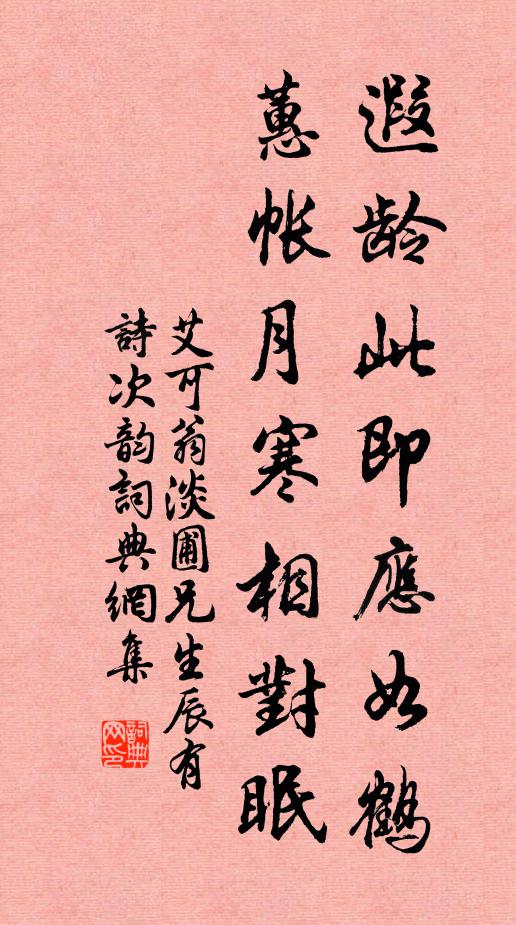 遐龄此即應如鶴
蕙帐月寒相對眠
艾可翁淡圃兄生辰有
詩次韵詞典網集
詞典
网印